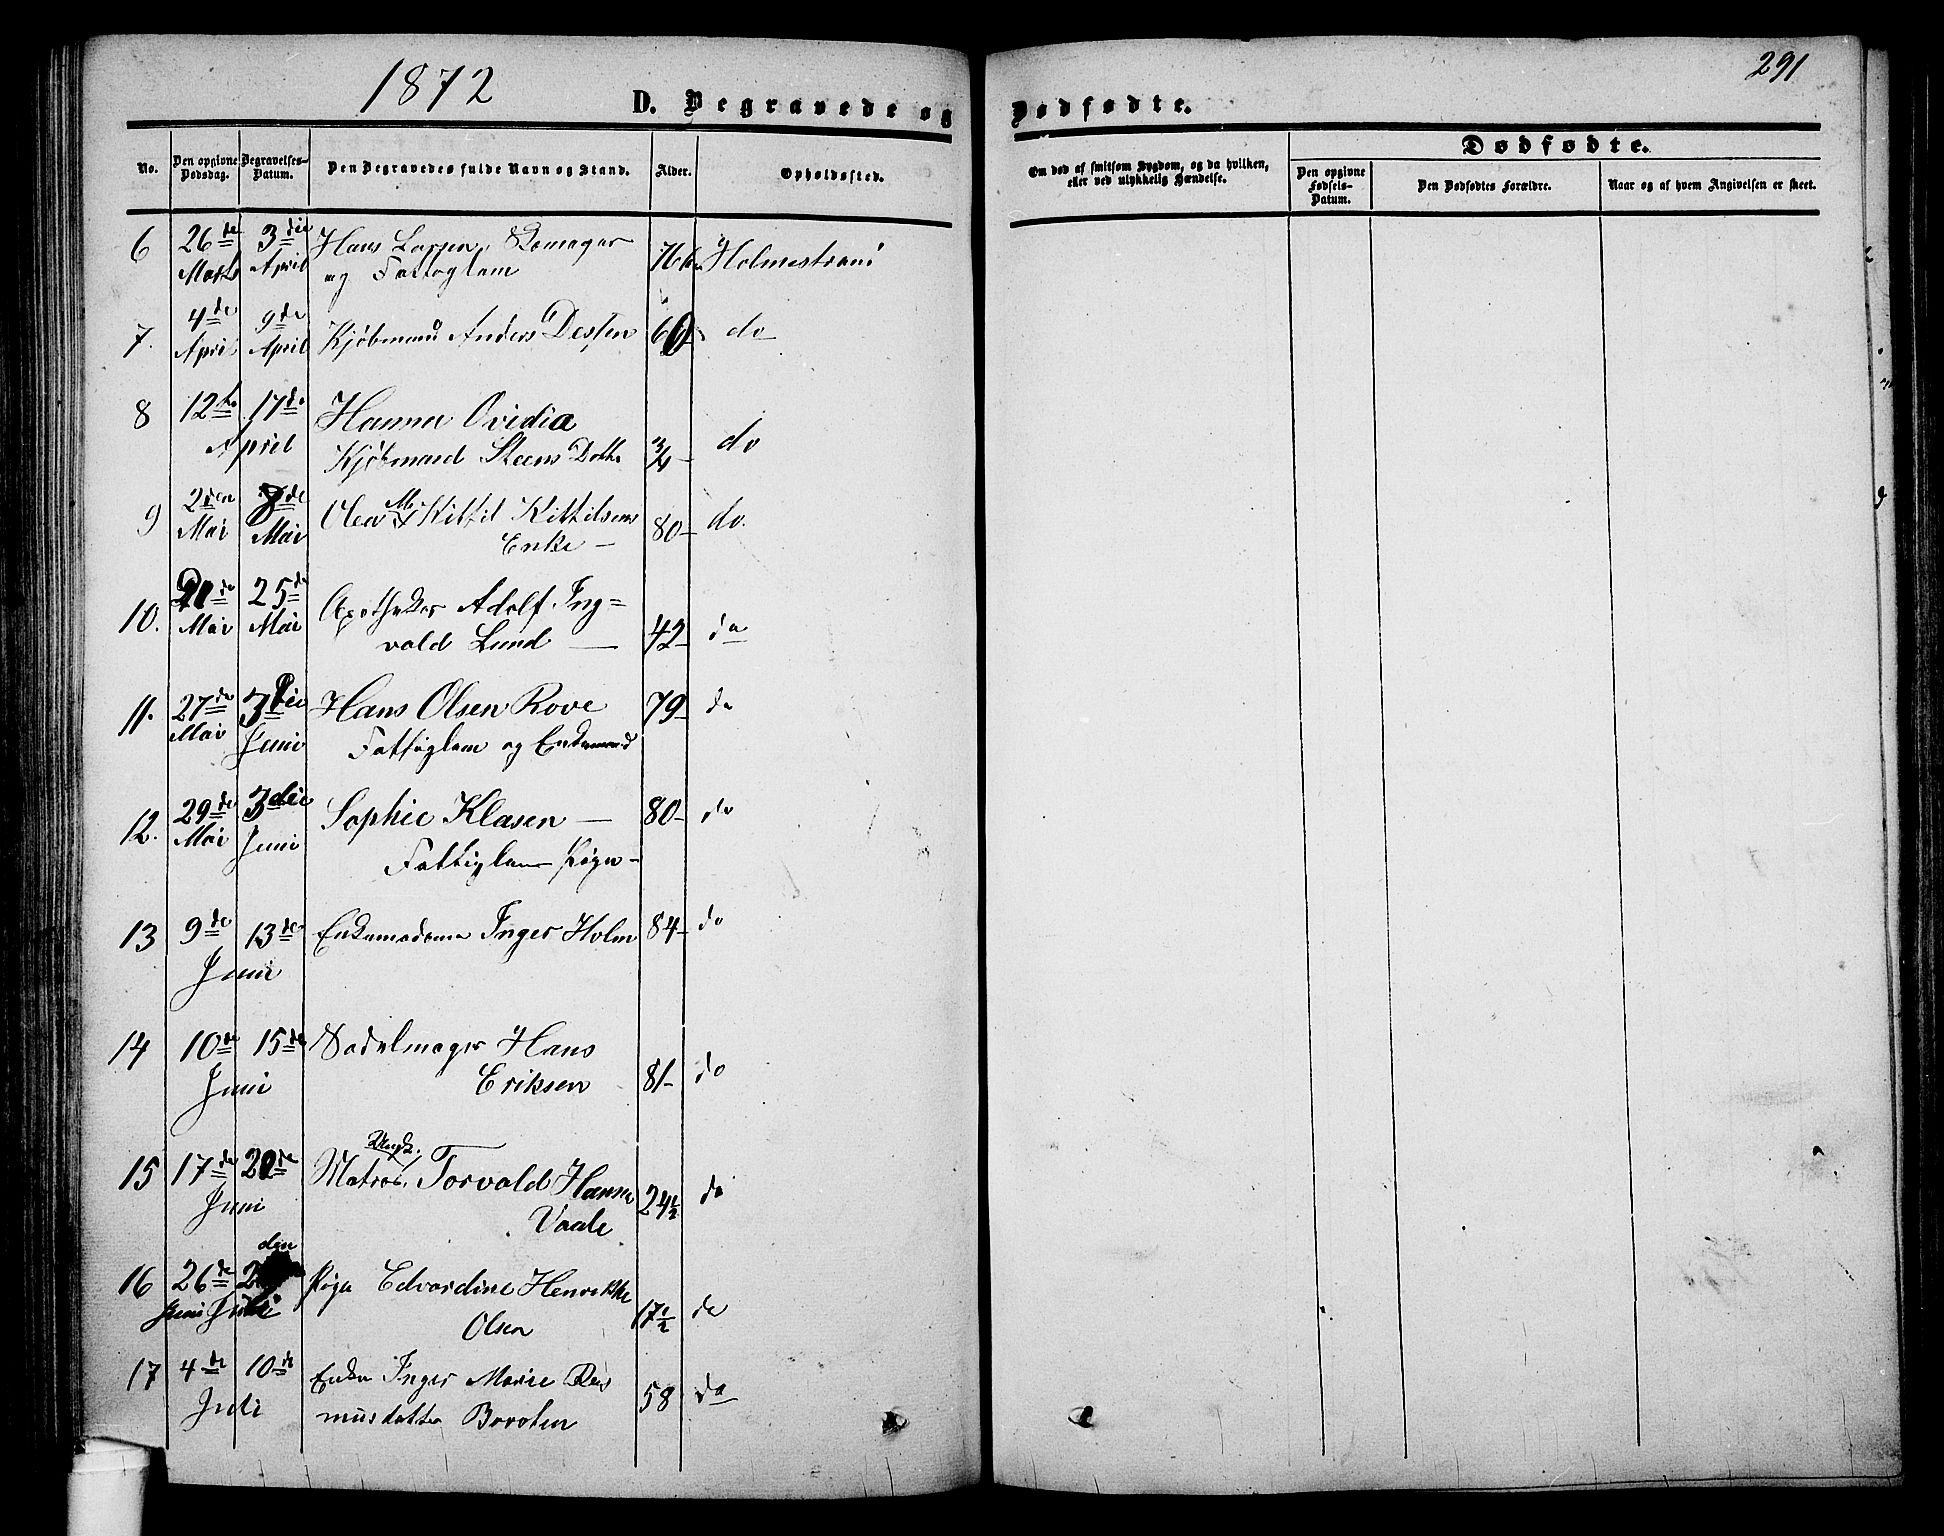 1872
D. Begravede og Dødfødte.
291
No.
Den opgivne Dødsdag.
Begravelses-Datum.
Den Begravedes fulde Navn og Stand.
Alder.
Opholdssted.
Om død af smitsom Sygdom, og da hvilken,
eller ved ulykkelig Hændelse.
Dødfødte.
Den opgivne Fødsels-Datum.
Den Dødfødtes Forældre.
Naar og af hvem Angivelsen er skeet.
6 26de 3die Hans Larsen, 76 Holmestrand
Marts April og Fattiglem
7. 4de 9de Kjøbmand Anders 60 do
April April
8 12te 17de Hanna Ovidia
April Kjøbmand Steens Dotter 3/4 - do
9 2den 8de Olea M. Kittil Kittilsens 80 - do.
Mai Mai Enke -
10. 21de 25de Apotheker Adolf Ing=
Mai Mai vald Lund - 42 - do
11. 27de 3die Hans Olsen Rove 79 - do
Mai Juni Fattiglem og Enkemand
12. 29de 3die Sophie Klasen - 80 - do
Mai Juni Fattiglem Pige -
13 9de 13de Enkemadame Inger Holm 84 - do
Juni
14 10de 15de Sadelmager Hans
Juni Eriksen 81 - do
15 17de 20de Matros, Ungk. Torvald Hansen
Juni Vaale 24 1/2 do
16 26de 2den Pige Edvardine Henrikke
Juni Juli Olsen 17 1/2 do
17 4de 10de Enke Inger Marie Ras
Juli musdatter 58 do